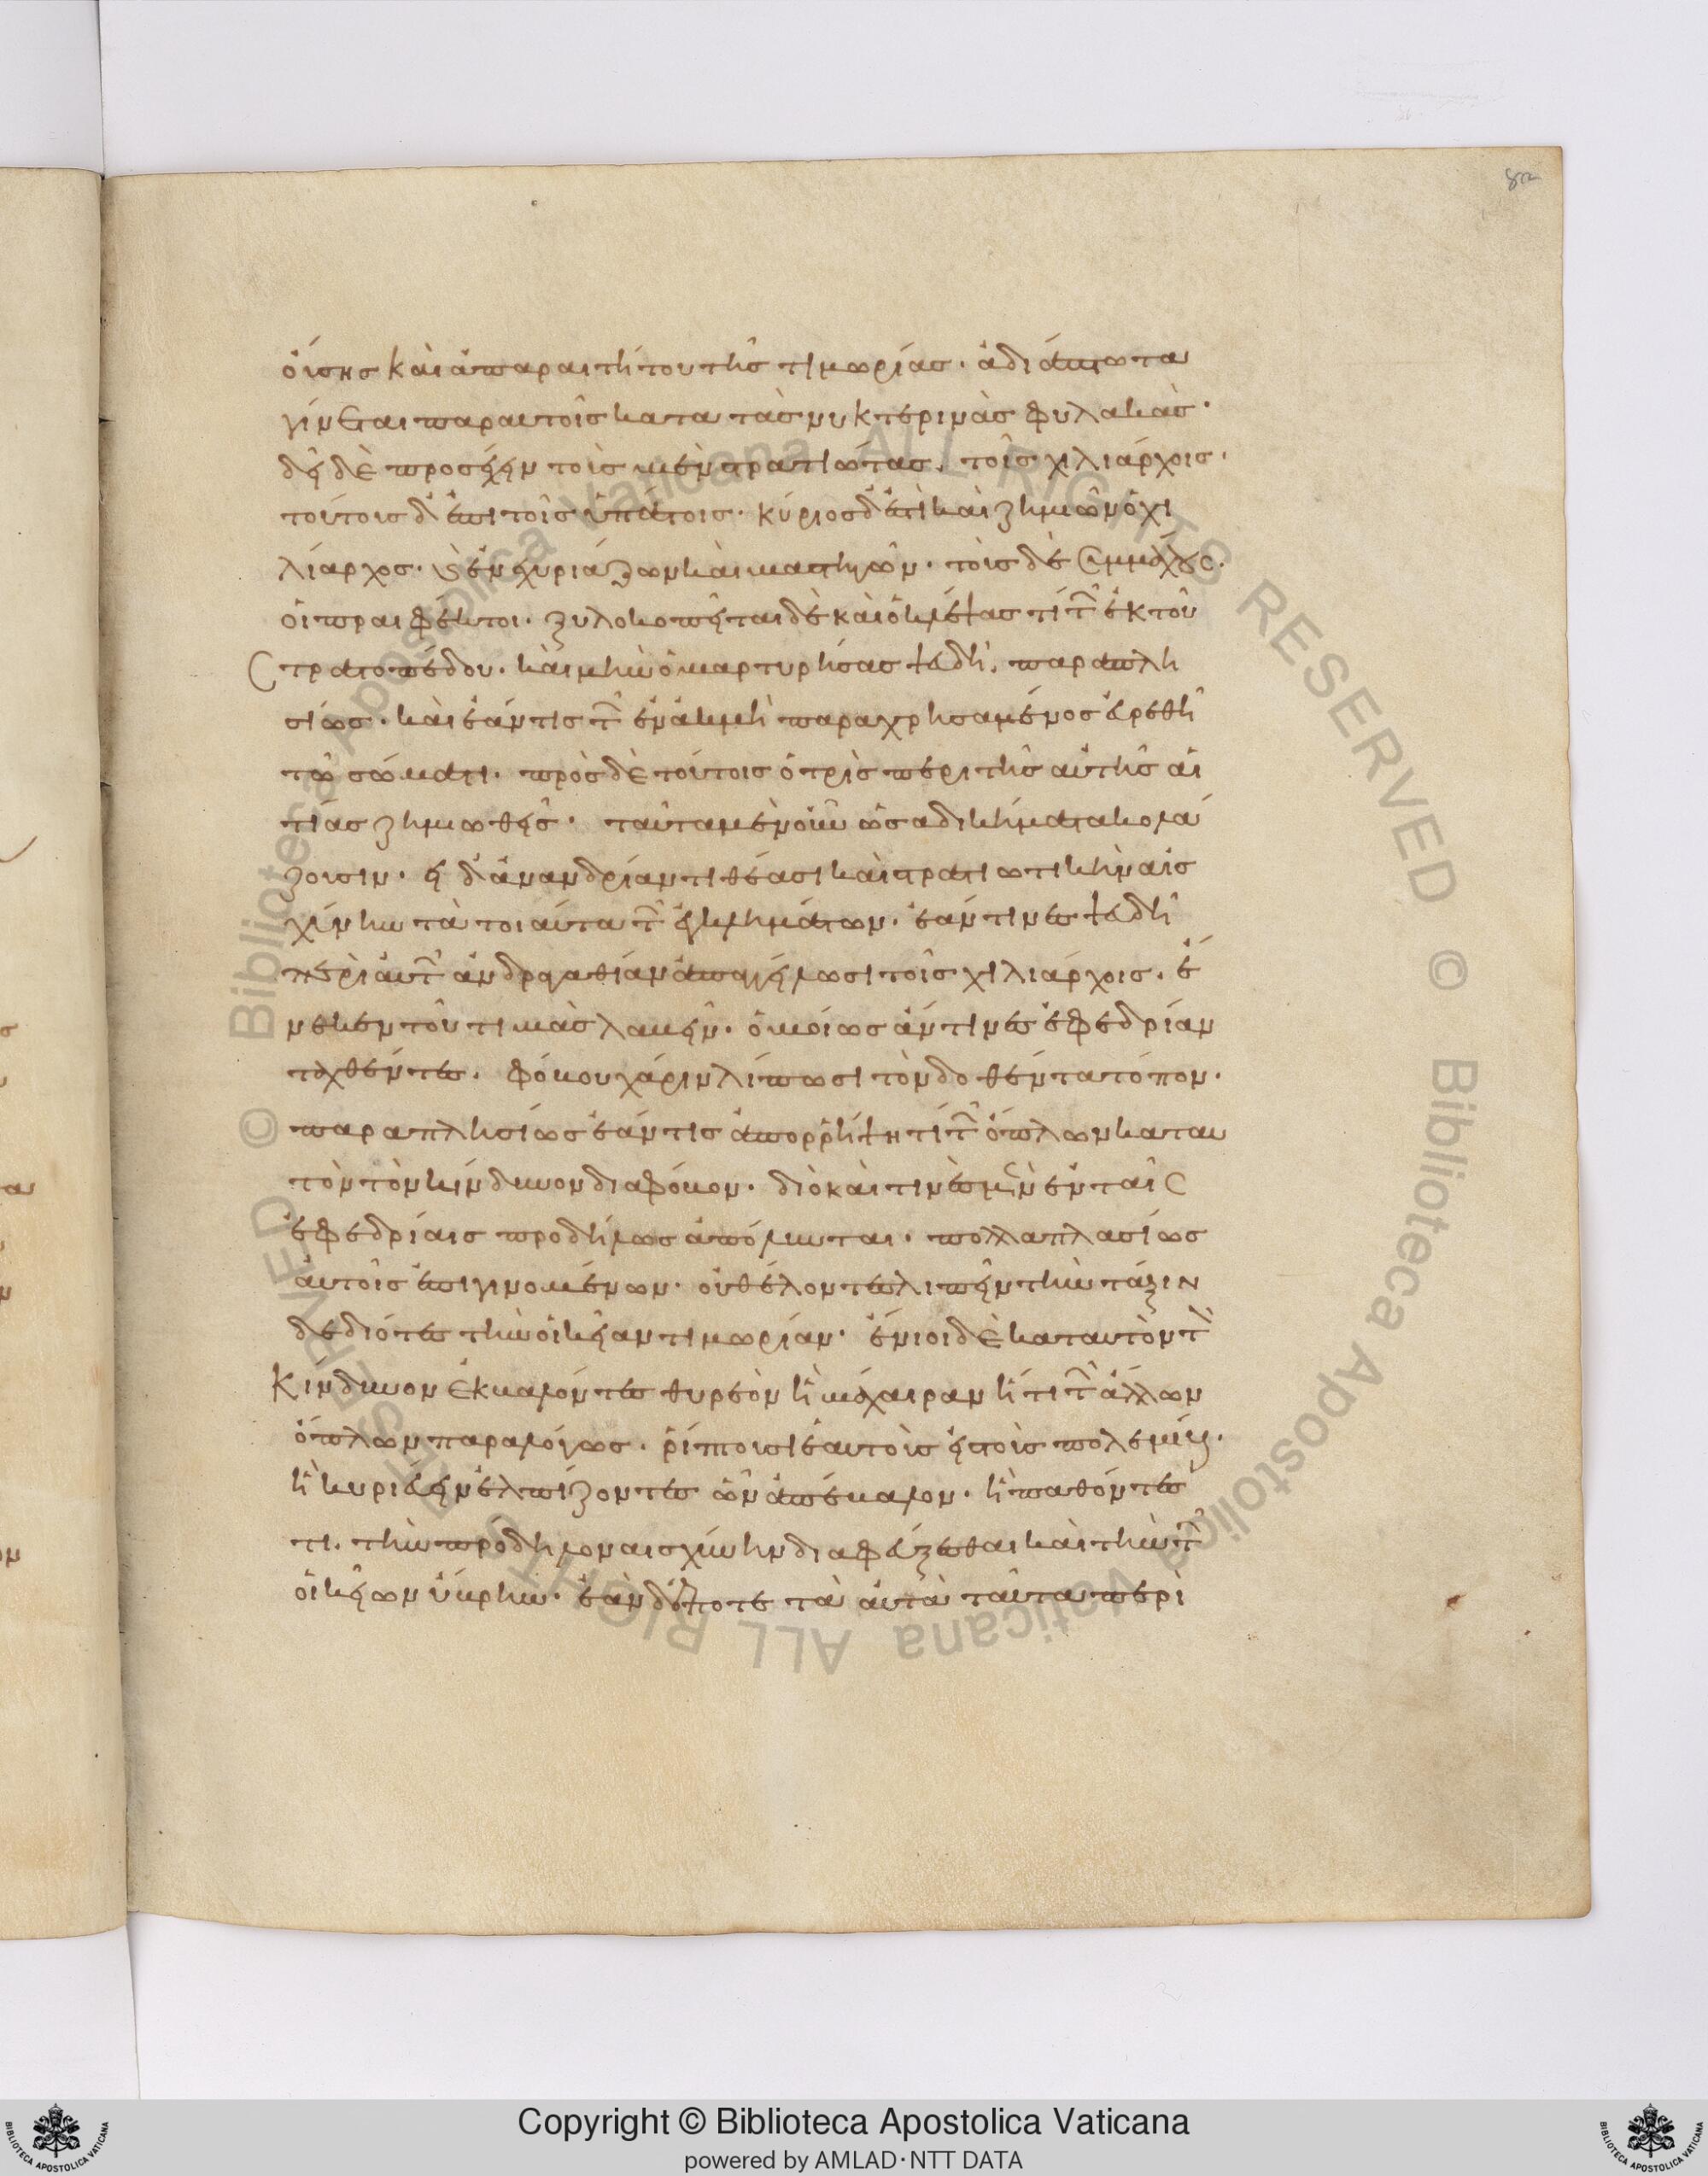 82
ούσης καὶ ἀπαραιτήτου τῆς τιμωρίας· ἀδιάπτωτα
γίνεται παραυτοῖς κατα τὰς νυκτερινὰς φυλακάς·
δεῖ δὲ προσέχειν τοῖς μὲν στρατιώτας. τοῖς χιλιάρχοις·
τούτους δ' ἔτι τοῖς ὑπάτοις· κύριος δ' ἐστὶ καὶ ζημιῶν ὁ χι
λίαρχος· καὶ ἐνεχυριάζων καὶ μαστιγῶν· τοὺς δὲ συμμάχους·
οἱ πραιφεκτοι· ξυλοκοπεῖται δὲ καὶ ὁ κλέψας τί τῶν ἐκ τοῦ
στρατοπέδου· καὶ μὴν ὁ μαρτυρήσας ψευδῆ· παραπλη
σίως· καὶ ἐάν τις τῶν ἐν ἀκμῇ παραχρησάμενος εὑρεθῆ
τῶ σώματι· πρὸς δὲ τούτοις ὁ τρὶς περὶ τῆς αὐτῆς αἰ
τίας ζημιωθείς· ταῦτα μὲν οὖν ὡς αδικήματα κολά
ζουσιν· εἰ δ' ἀνανδρίαν τιθέασι καὶ στρατιωτικὴν αἰσ
χύνην τὰ τοιαῦτα τῶν ἐγκλημάτων· ἐάν τινες ψευδῆ
περὶ αὑτῶν ἀνδραγαθίαν ἀπαγγείλωσι τοῖς χιλιάρχοις· ἕ
νεκεν τοῦ τιμὰς λαβεῖν· ὁμοίως ἄν τινες ἐφεδρίαν
ταχθέντες· φόβου χάριν λίπωσι τὸν δοθέντα τόπον·
παραπλησίως ἐάν τις ἀπορρίψη τί τῶν ὅπλων κατ' αυ
τὸν τὸν κίνδυνον διαφόβον· διὸ καὶ τινὲς μὲν ἐν ταῖς
ἐφεδρίαις προδήλως ἀπόλλυνται· πολλαπλασίως
αὐτοῖς ἐπιγινομένων· οὐ θέλοντες λιπεῖν τὴν τάξιν
δεδιότες τὴν οἰκείαν τιμωρίαν· ἔνιοι δὲ κατ' αυτὸν τὸν
κίνδυνον ἐκβαλόντες θυρεὸν ἢ μάχαιραν ἤ τι τῶν ἄλλων
ὅπλων παραλόγως· ῥίπτουσι ἑαυτοὺς εἰς τοὺς πολεμίους·
ἢ κυριεύειν ἐλπίζοντες ὧν ἀπέβαλον· ἢ παθόντες
τι. τὴν πρόδηλον αισχύνην διαφεύξεσθαι καὶ τὴν τῶν
οἰκείων ὕβριν· ἐὰν δέ ποτε τὰ αὐτὰ ταῦτα περὶ
Copyright © Biblioteca Apostolica Vaticana
powered by AMLAD·NTT DATA